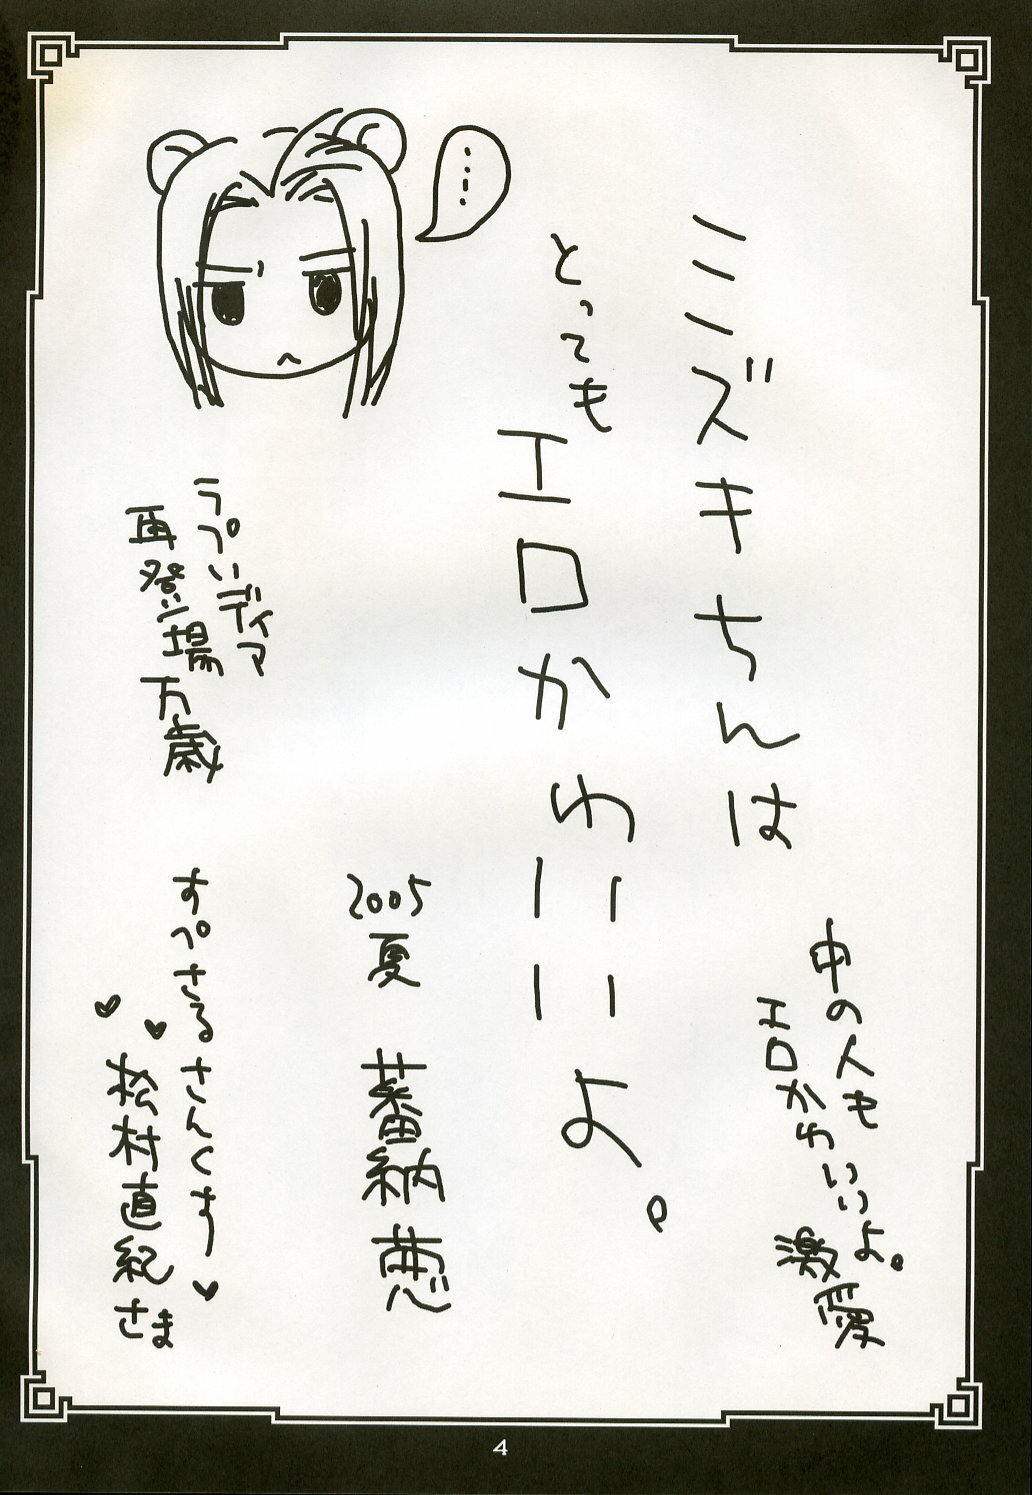 ミズキちんは
とっても
エロかわいいよ。
中の人も
エロかわいいよ。
激愛
…
2005
夏
蕃納葱
ラプいディア
再登場
万歳
すぺさるさんくすー♥
♥♥
松村直紀さま
4